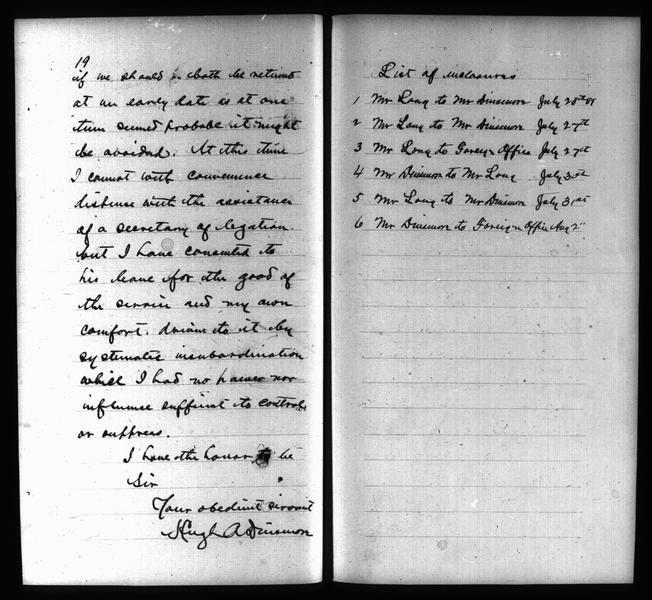 19
if we should both be returned
at an early date as at one
time seemed probable it might
be avoided. At this time
I cannot with convenience
dispense with the assistance
of a secretary of legation.
but I have consented to
his leave for the good of
the service and my own
comfort. driven to it by
systematic insubordination
which I had no power nor
influence sufficient to control
or suppress.
I have the honor to be
Sir
Your obedient servant
Hugh A Dinsmore
List of inclosures
1 Mr Long to Mr Dinsmore July 25th 89
2 Mr Long to Mr Dinsmore July 27th
3 Mr Long to Foreign Office July 27th
4 Mr Dinsmore to Mr Long July 30th
5 Mr Long to Mr Dinsmore July 31st
6 Mr Dinsmore to Foreign Office Aug 2"